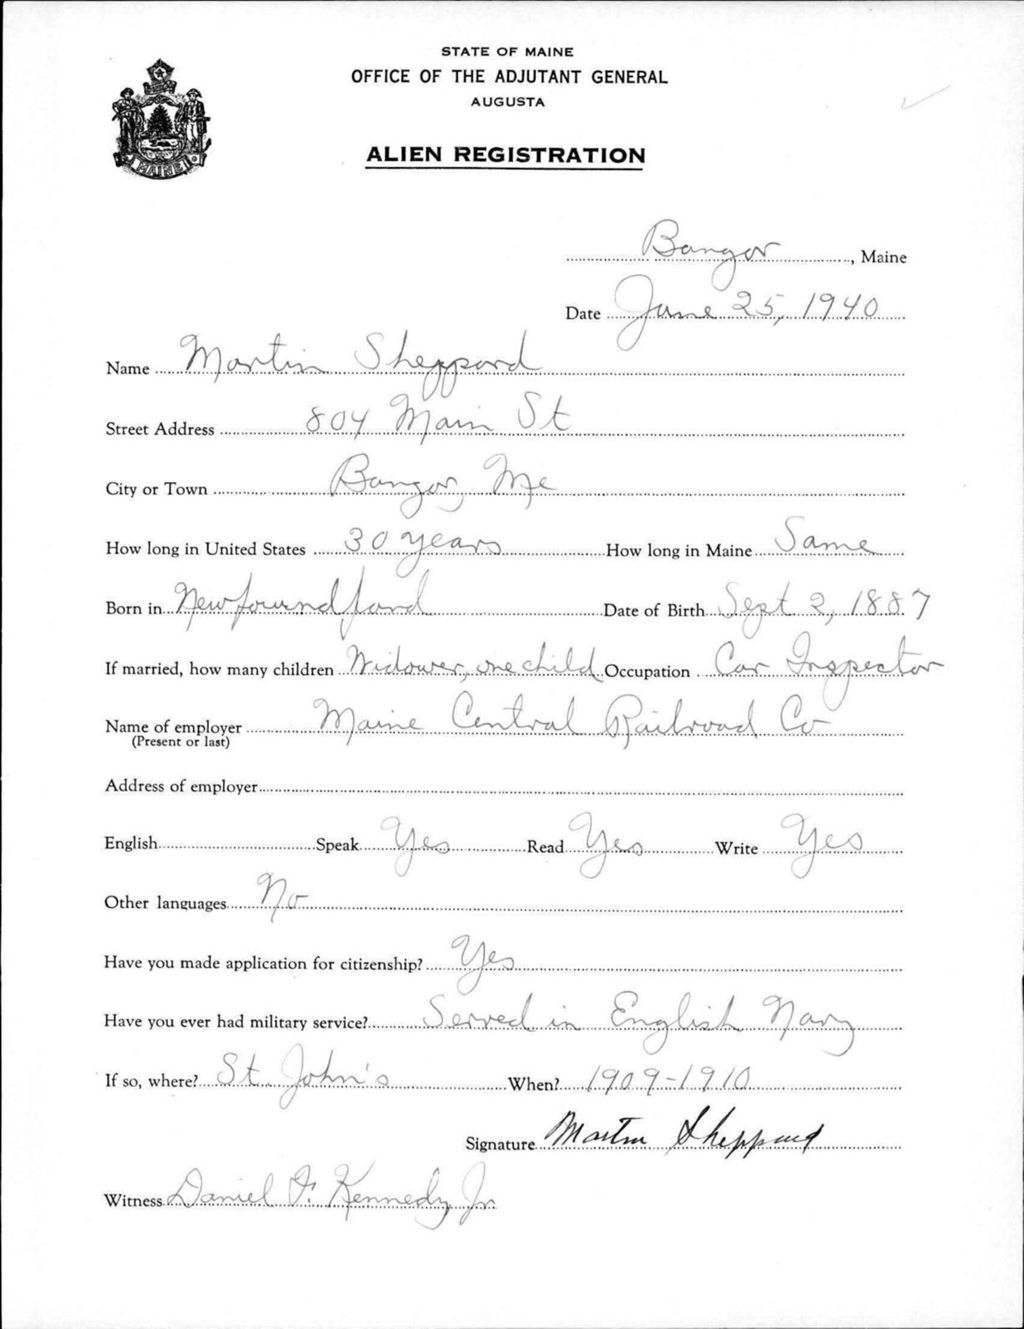 STATE OF MAINE
OFFICE OF THE ADJUTANT GENERAL
AUGUSTA
ALIEN REGISTRATION
MAINE
Bangor, Maine
Date June 25, 1940
Name Martin Sheppard
Street Address 804 Main St
City or Town Bangor, Me
How long in United States 30 years How long in Maine Same
Born in Newfoundland Date of Birth Sept 2, 1887
If married, how many children Widower, one child Occupation Car Inspector
Name of employer Maine Central Railroad Co
(Present or last)
Address of employer
English Speak Yes Read Yes Write Yes
Other languages No
Have you made application for citizenship? Yes
Have you ever had military service? Served in English Navy
If so, where? St. John's When? 1909-1910
Signature Martin Sheppard
Witness Daniel F. Kennedy, Jr